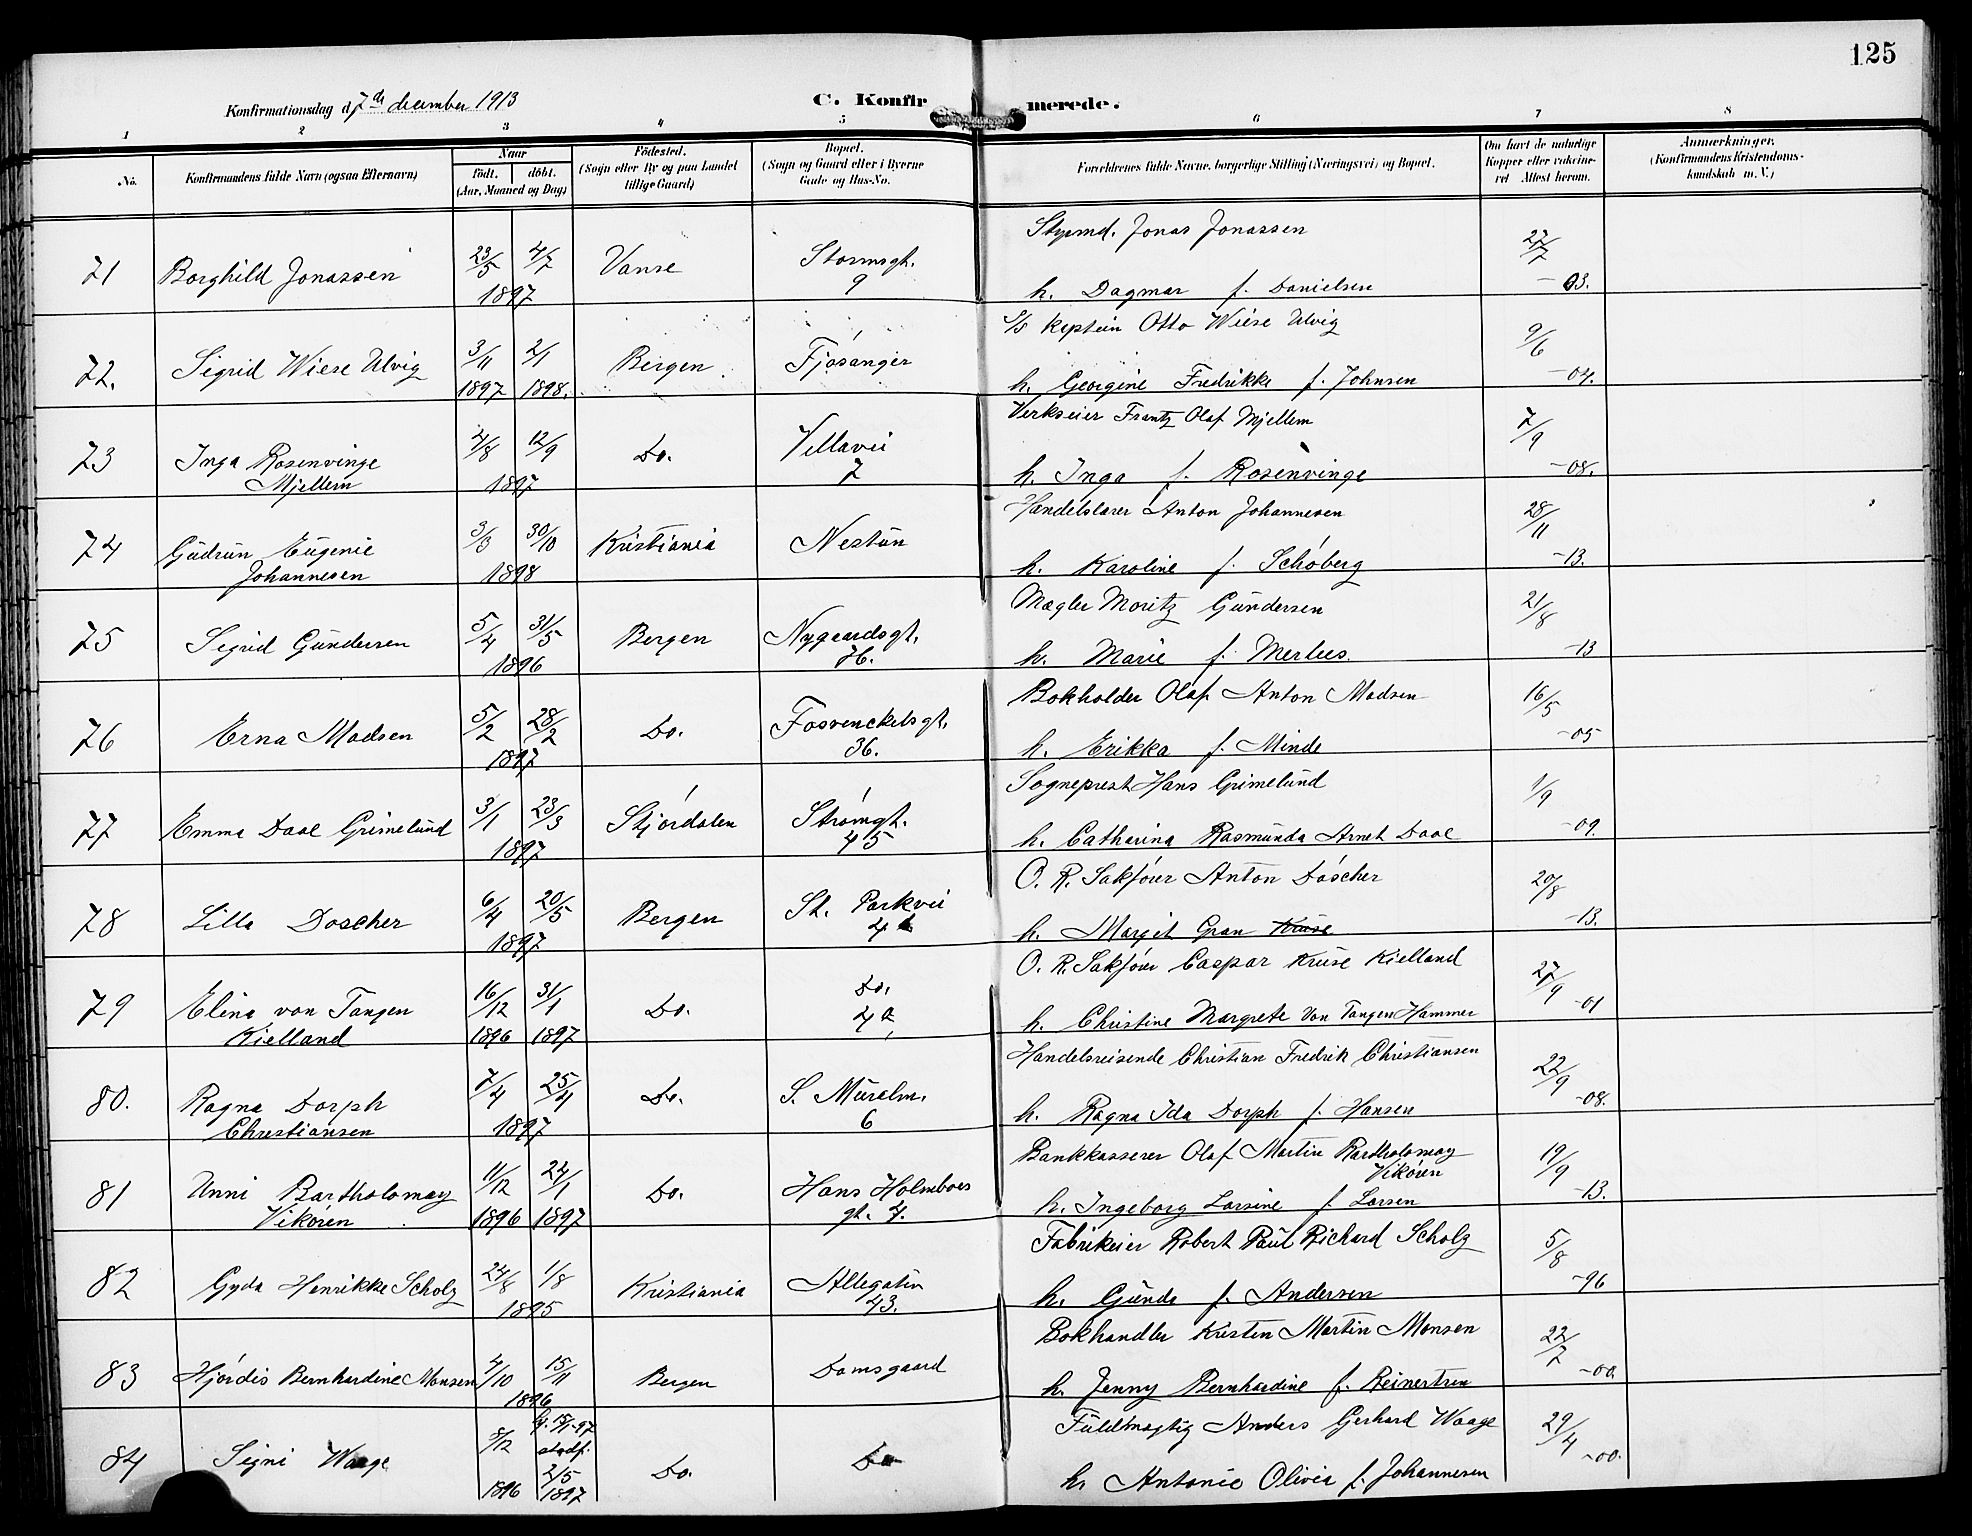 125
Konfirmationsdag d. 7de december 1913
C. Konfirmerede.
1 2 3 4 5 6 7 8
No.
Konfirmandens fulde Navn (ogsaa Efternavn)
Naar
født. døbt.
(Aar, Maaned og Dag)
Fødested.
(Sogn eller By og paa Landet
tillige Gaard)
Bopæl.
(Sogn og Gaard eller i Byerne
Gade og Hus-No.
Forældrenes fulde Navne, borgerlige Stilling (Næringsvei) og Bopæl.
Om havt de naturlige
Kopper eller vakcine-
ret Attest herom.
Anmærkninger.
(Konfirmandens Kristendoms-
kundskab m. V.)
71 Borghild Jonassen 23/5 4/7 1897 Vanse Stormsgt. 9
Styrmd. Jonas Jonassen
h. Dagmar f. Danielsen 27/7 -03.
72. Sigrid Wiese Ulvig 3/11 1897 2/1 1898. Bergen Fjøsanger
S/S kaptein Otto Wiese Ulvig
h. Georgine Fredrikke f. Johnsen 9/6 -04.
73 Inga Rosenvinge Mjellem 4/8 12/9 1897 Do. Villavei 7
Verkseier Frantz Olaf Mjellem
h. Inga f. Rosenvinge 7/9 -08.
74 Gudrun Eugenie Johannesen 3/3 30/10 1898 Kristiania Nestun
Handelslærer Anton Johannesen
h. Karoline f. Schøberg 28/11 -13.
75 Sigrid Gundersen 5/4 31/5 1896 Bergen Nygaardsgt. 76.
Mægler Moritz Gundersen
h. Marie f. Merlees. 21/8 -13
76 Erna Madsen 5/2 28/2 1897 Do. Fosvenckelsgt. 36.
Bokholder Olaf Anton Madsen
h. Erikka f. Minde 16/5 -05
77 Emma Daae Grimelund 3/1 23/3 1897 Stjørdalen Strømgt. 45
Sogneprest Hans Grimelund
h. Catharina Rasmunda Arnet Daae 1/9 -09.
78 Lilla Doscher 6/4 20/5 1897 Bergen St. Parkvei 4
O. R. Sakfører Anton Døscher
h. Margit Gran Kruse 20/8 -13.
79 Elina von Tangen Kielland 16/12 1896 31/1 1897 Do. Do. 4a
O. R. Sakfører Caspar Kruse Kielland
h. Christine Margrete von Tangen Hammer 27/9 -01
80. Ragna Dorph Christiansen 7/4 25/4 1897 Do. S. Muralm. 6
Handelsreisende Christian Fredrik Christiansen
h. Ragna Ida Dorph f. Hansen 22/9 -08.
81 Unni Bartholomay Vikøren 11/12 1896 24/1 1897 Do. Hans Holmboes gt. 7.
Bankkasserer Olaf Martin Bartholomay Vikøren
h. Ingeborg Larsine f. Larsen 19/9 -13.
82 Gyda Henrikke Scholz 24/8 1/8 1895 Kristiania Allegaten 43.
Fabrikeier Robert Paul Richard Scholz
h. Gunda f. Andersen 5/8 -96
83 Hjørdis Bernhardine Monsen 4/10 15/11 1896 Bergen Damsgaard
Bokhandler Kristen Martin Monsen
h. Jenny Bernhardine f. Reinertsen 22/7 -00.
84 Signi Waage 8/12 1896 stadf. 2/5 1897 Do. Do
Fuldmægtig Anders Gerhard Waage
h. Antonie Olivia f. Johannesen 29/4 -00.